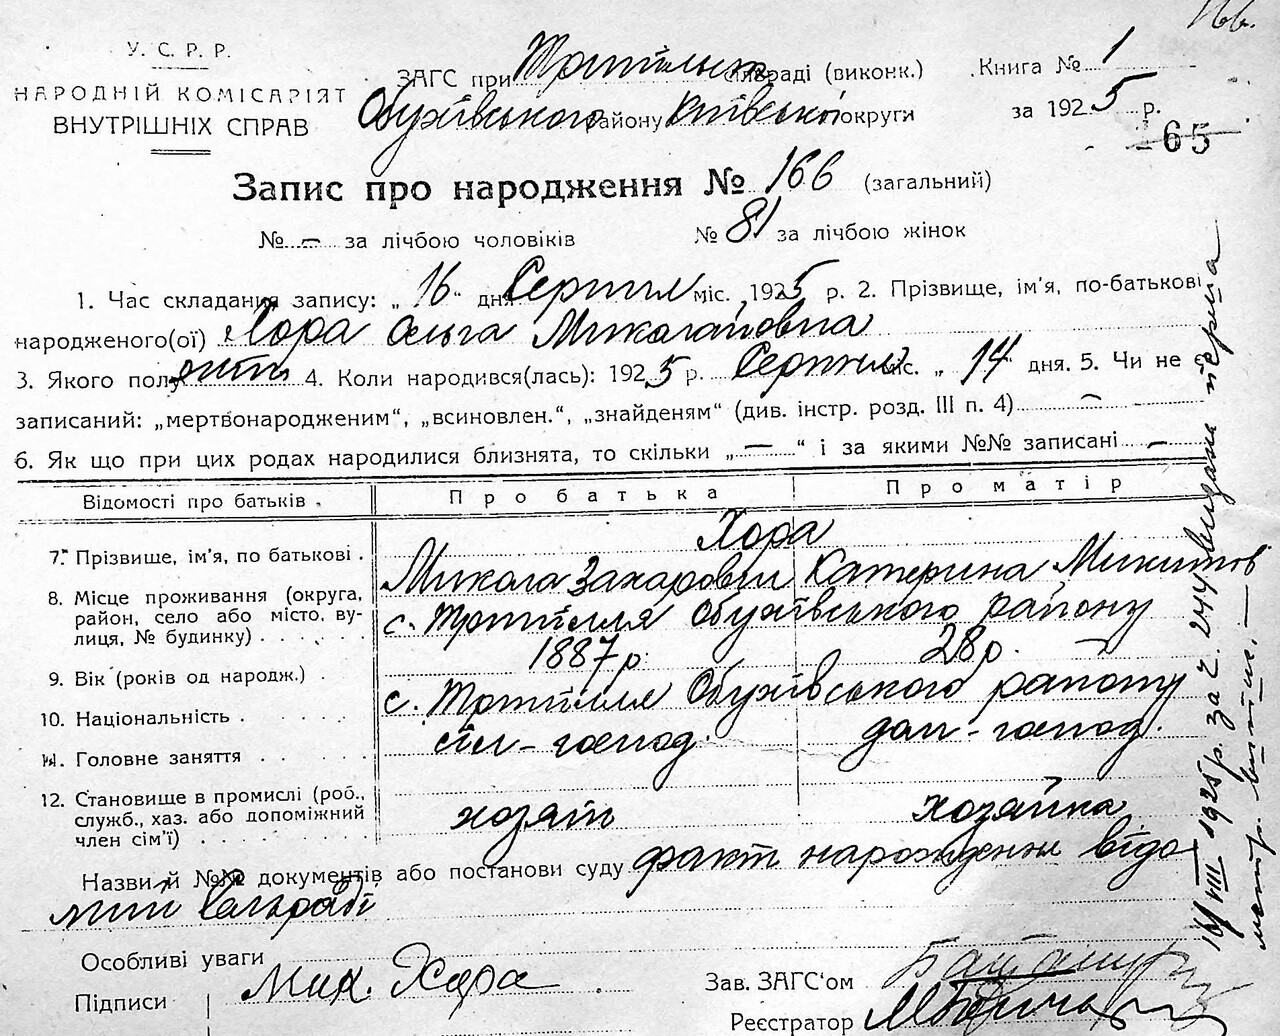 166.
У. С. Р. Р.
НАРОДНІЙ КОМІСАРІЯТ
ВНУТРІШНІХ СПРАВ
ЗАГС при Трипільск сільраді (виконк.)
Обухівського району Київської округи
Книга № 1
за 1925 р.
65
Запис про народження № 166 (загальний)
№ — за лічбою чоловіків № 81 за лічбою жінок
1. Час складання запису: „ 16 “ дня Серпня міс. 1925 р. 2. Прізвище, ім'я, по-батькові
народженого(ої) Хора Ольга Миколаївна
3. Якого полу 4. Коли народився(лась): 1925 р. Серпня міс. „ 14 “ дня. 5. Чи не є
записаний: „мертвонародженим“, „всиновлен.“, „знайденям“ (див. інстр. розд. III п. 4) —
6. Як що при цих родах народилися близнята, то скільки „ — “ і за якими №№ записані —
Відомості про батьків Про батька Про матір
Хора
7. Прізвище, ім'я, по батькові Микола Захарович Катерина Микитов
8. Місце проживання (округа, район, село або місто, вулиця, № будинку) с. Трипілля Обухівського району
9. Вік (років од народж.) 1887 р. 28 р.
10. Національність с. Трипілля Обухівського району
11. Головне заняття сіл-господ. дом-господ.
12. Становище в промислі (роб., служб., хаз. або допоміжний член сім'ї) хозяїн хозяйка
Назви й №№ документів або постанови суду факт народження відо
мий Сільраді
Особливі уваги
Підписи Мик. Хора
Зав. ЗАГС'ом
Реєстратор
16/VIII 1925 р. за ч. 244 видана перша
метр. витяг. —